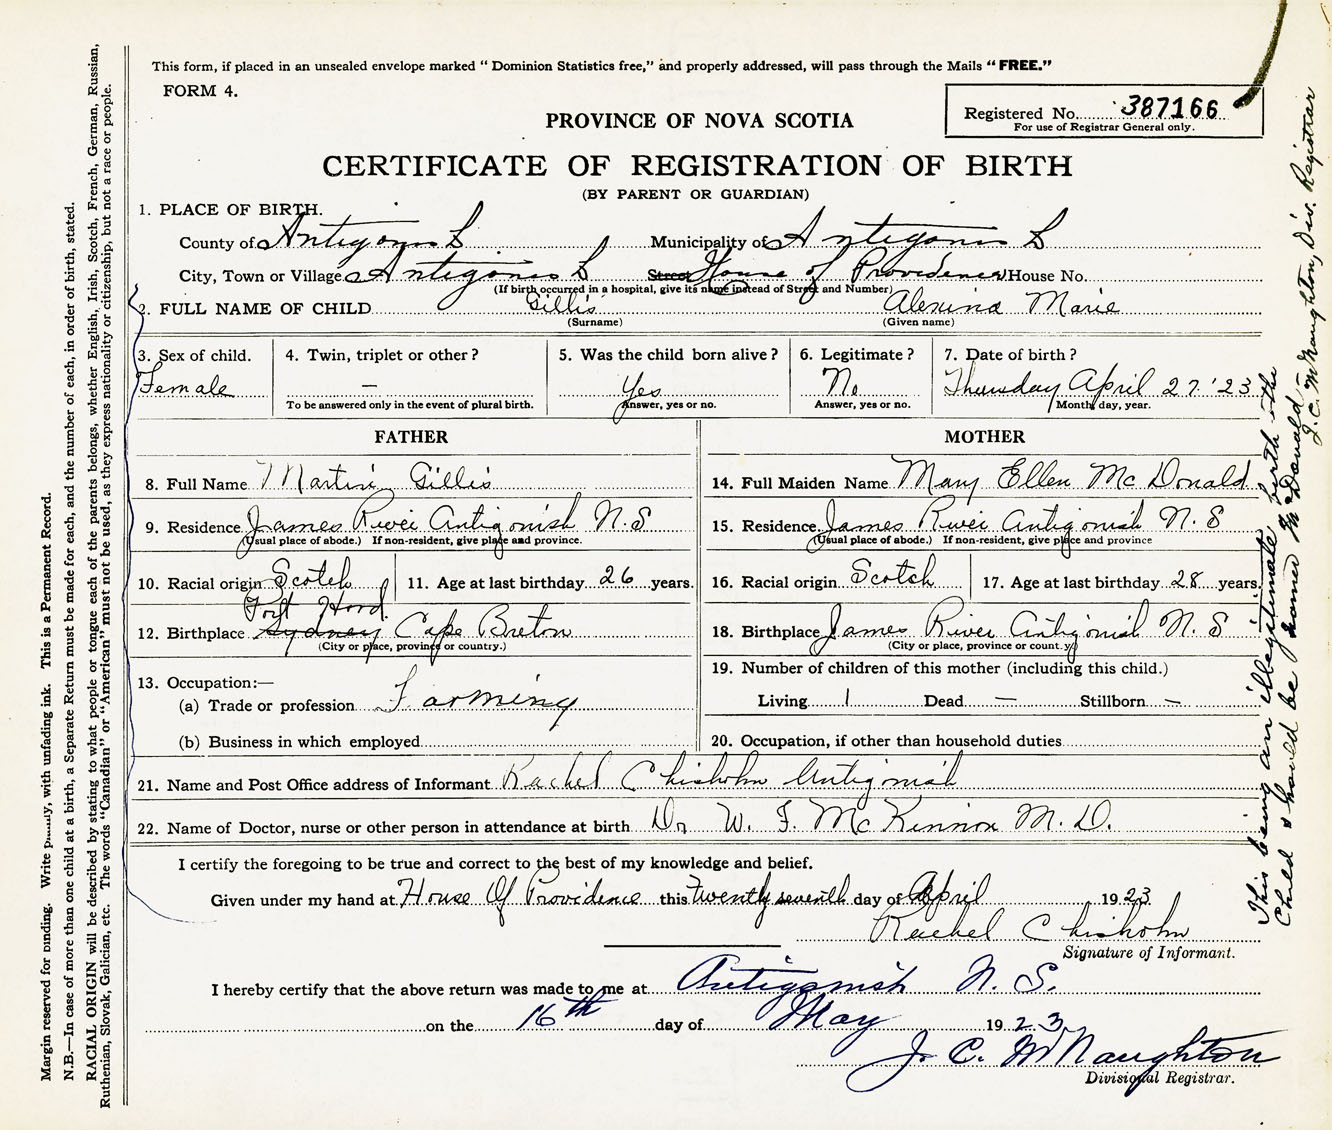 This form, if placed in an unsealed envelope marked “ Dominion Statistics free,” and properly addressed, will pass through the Mails “ FREE.”
FORM 4.
Registered No. 387166
For use of Registrar General only.
PROVINCE OF NOVA SCOTIA
CERTIFICATE OF REGISTRATION OF BIRTH
(BY PARENT OR GUARDIAN)
1. PLACE OF BIRTH.
County of Antigonish Municipality of Antigonish
City, Town or Village Antigonish Street House of Providence House No.
(If birth occurred in a hospital, give its name instead of Street and Number)
2. FULL NAME OF CHILD Gillis Alexina Marie
(Surname) (Given name)
3. Sex of child. 4. Twin, triplet or other ? 5. Was the child born alive ? 6. Legitimate ? 7. Date of birth ?
Female — Yes No Thursday April 27 '23
To be answered only in the event of plural birth. Answer, yes or no. Answer, yes or no. Month, day, year.
FATHER MOTHER
8. Full Name Martin Gillis 14. Full Maiden Name Mary Ellen McDonald
9. Residence James River Antigonish N.S 15. Residence James River Antigonish N.S
(Usual place of abode.) If non-resident, give place and province. (Usual place of abode.) If non-resident, give place and province
10. Racial origin Scotch 11. Age at last birthday 26 years. 16. Racial origin Scotch 17. Age at last birthday 28 years.
Port Hood
12. Birthplace Sydney Cape Breton 18. Birthplace James River Antigonish N.S
(City or place, province or country.) (City or place, province or count.y)
19. Number of children of this mother (including this child.)
13. Occupation:—
(a) Trade or profession Farming Living 1 Dead — Stillborn —
(b) Business in which employed 20. Occupation, if other than household duties
21. Name and Post Office address of Informant Rachel Chisholm Antigonish
22. Name of Doctor, nurse or other person in attendance at birth Dr W. F. McKinnon M.D.
I certify the foregoing to be true and correct to the best of my knowledge and belief.
Given under my hand at House Of Providence this twenty seventh day of April 1923
Rachel Chisholm
Signature of Informant.
I hereby certify that the above return was made to me at Antigonish N.S.
on the 16th day of May 1923
J. C. McNaughton
Divisional Registrar.
Margin reserved for binding. Write with unfading ink. This is a Permanent Record.
N.B.—In case of more than one child at a birth, a Separate Return must be made for each, and the number of each, in order of birth, stated.
RACIAL ORIGIN will be described by stating to what people or tongue each of the parents belongs, whether English, Irish, Scotch, French, German, Russian,
Ruthenian, Slovak, Galician, etc. The words “Canadian” or “American” must not be used, as they express nationality or citizenship, but not a race or people.
This being an illegitimate birth the
Child should be named McDonald —
J. C. McNaughton, Div. Registrar